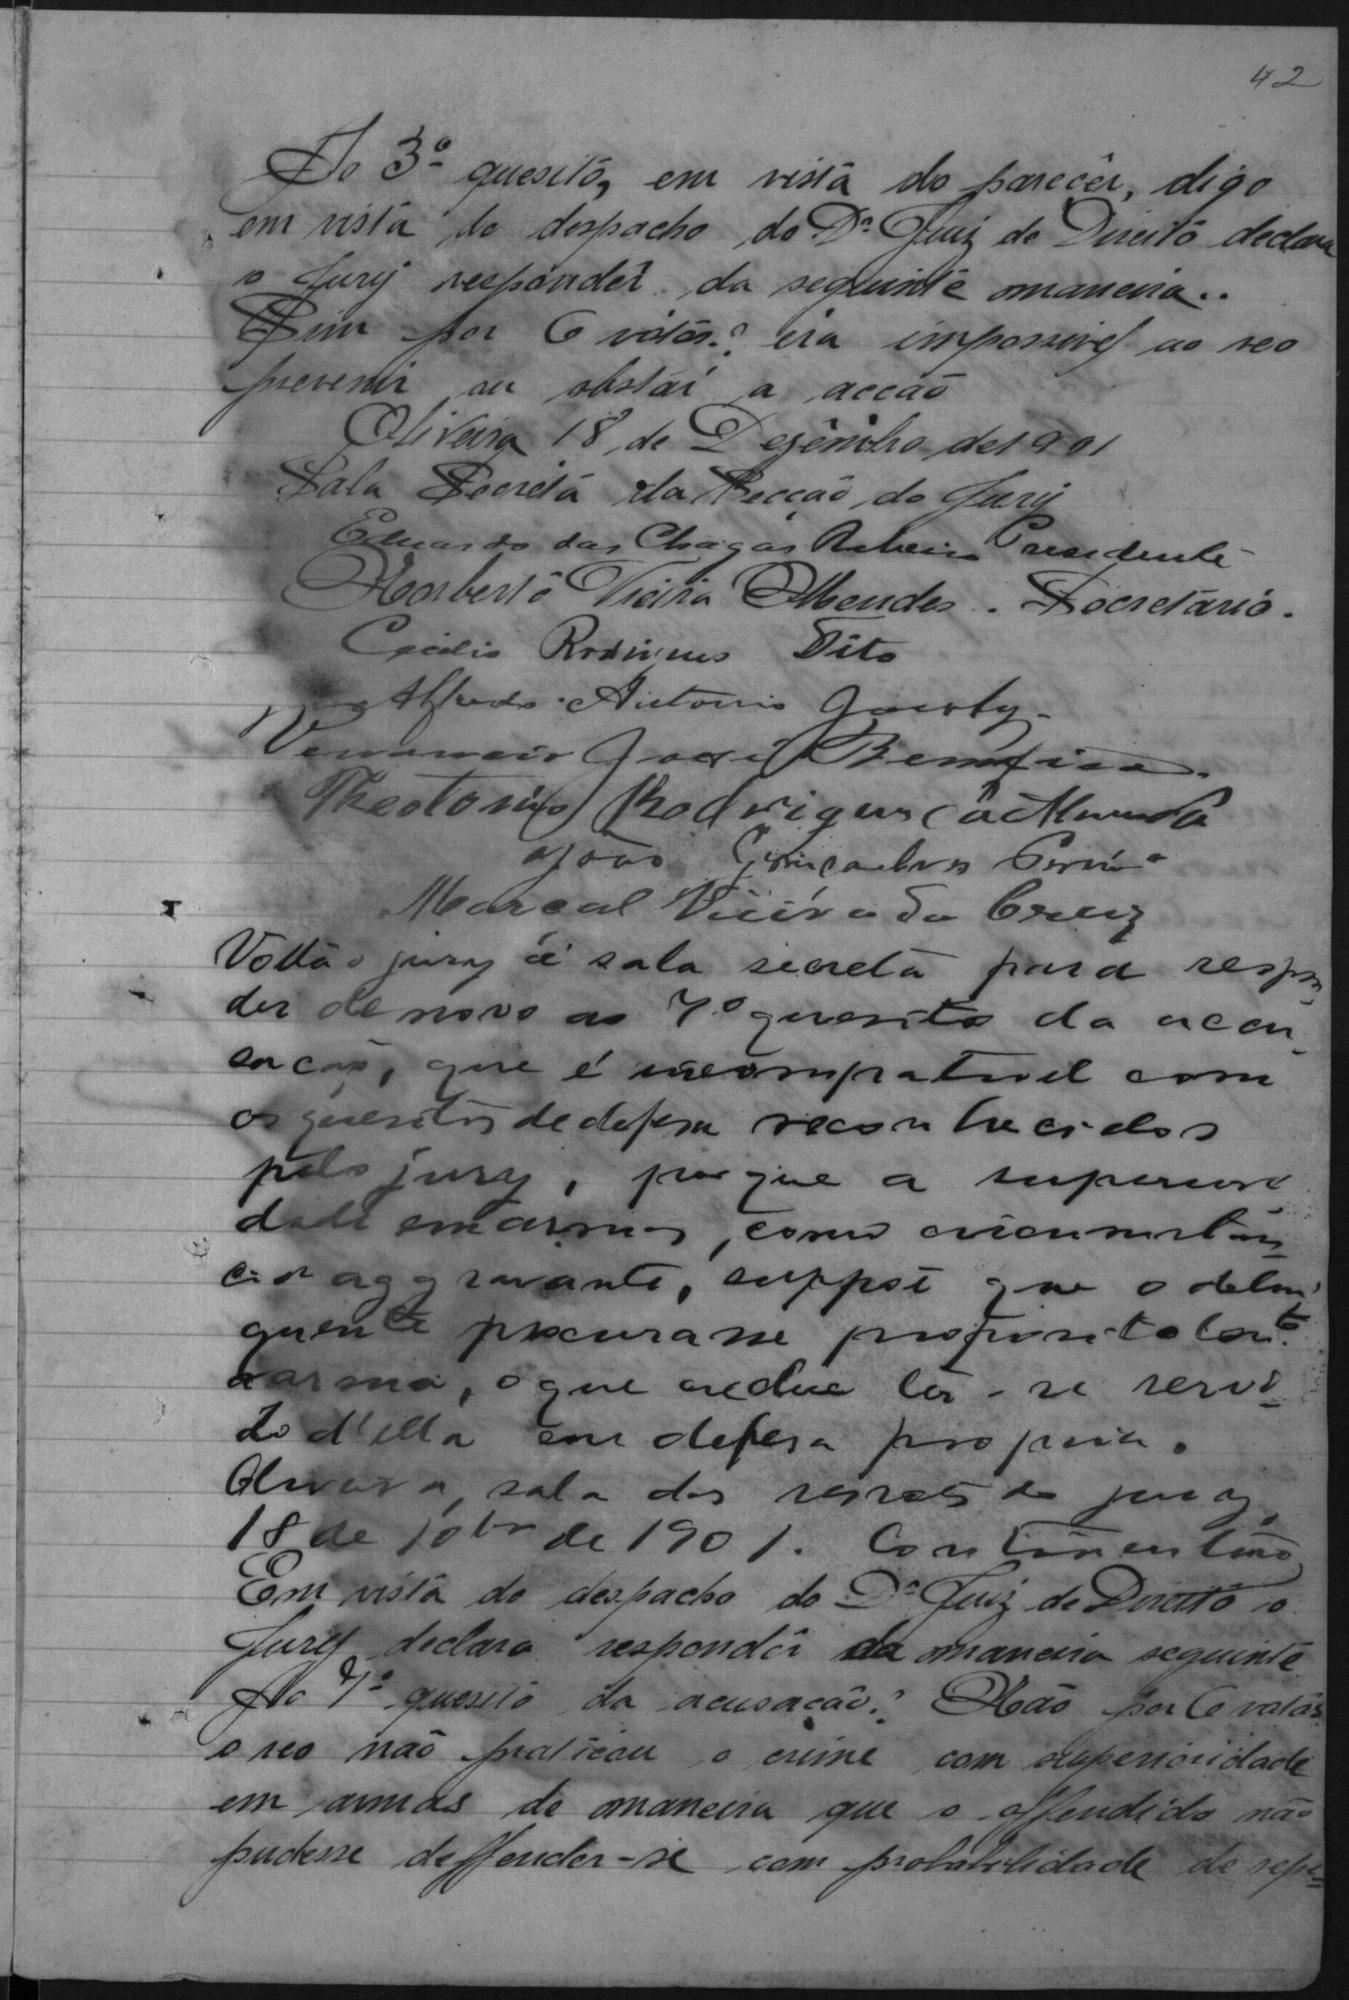 42
Ao 3º quesito, em vista do parecêr, digo
em vista do despacho do Dr. Juiz de Direito declara
o Jury respondêr da seguinte maneira..
Sim por 6 votos: era impossivel ao reo
prevenir ou obstar a acção
Oliveira 18 de Dezêmbro de 1901
Sala Secreta da Secção do Jury
Eduardo das Chagas Ribeiro Presidente
Norberto Vieira Mendes. Secretario.
Cecilio Rodrigues Tito
Alfredo Antonio
Venancio José Bemfica.
Theotonio Rodrigues
João Gonçalves
Marçal Vieira da Cruz
Volta o jury á sala secreta para respon-
der de novo ao 7º quesito da accu-
sação, que é incompativel com
os quesitos de defesa reconhecidos
pelo jury, porque a superiori
dade em armas, como circumstan
cia aggravante, suppõe que o delin
quente procurasse propositalmte
a arma, o que exclue ter-se servi-
do d'ella em defesa propria.
Oliveira, sala das sessões do jury,
18 de 10bro de 1901.
Em vista do despacho do Dr. Juiz de Direito o
Jury declara respondêr da maneira seguinte
Ao 7º quesito da acusacão: Não por 6 votos
o reo não praticou o crime com superioridade
em armas de maneira que o offendido não
pudesse deffender-se com probabilidade de repe-